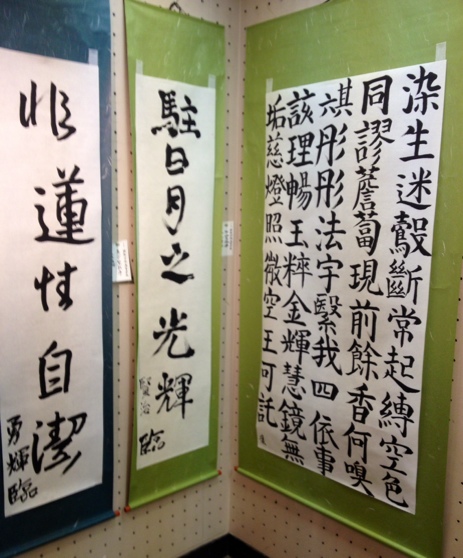 染生迷鷇斷常起縛空色
同謬薝蔔現前餘香何嗅
其六彤彤法宇繄我四依事
該理暢玉粹金輝慧鏡無
垢慈燈照微空王可託
駐日月之光輝
臨
非蓮性自潔
勇輝臨